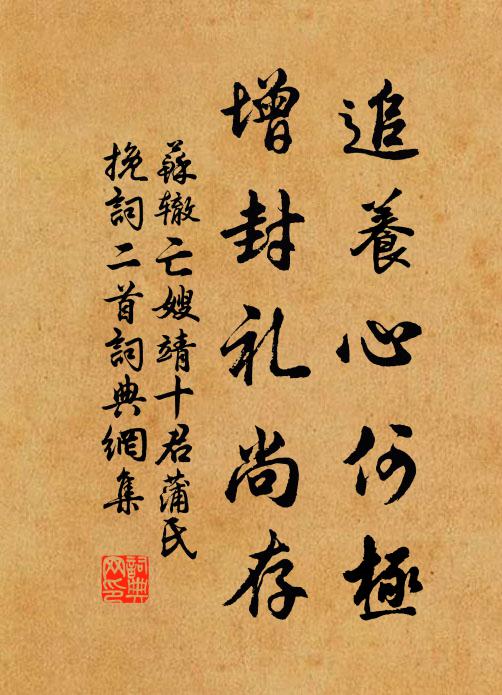 追養心何極
增封礼尚存
蘇辙亡嫂靖十君蒲氏
挽詞二首詞典網集
詞典网印